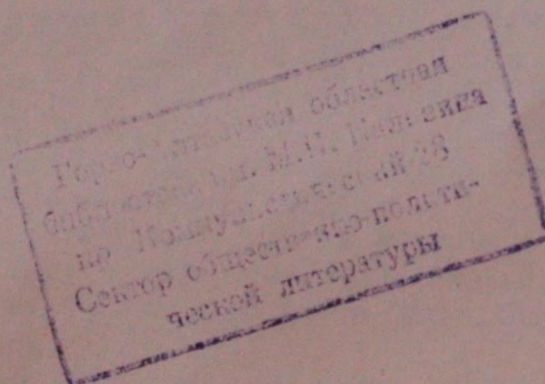 Горно-Алтайская областная
библиотека им. М.И. Калинина
пр Коммунистический 28
Сектор общественно-полити-
ческой литературы